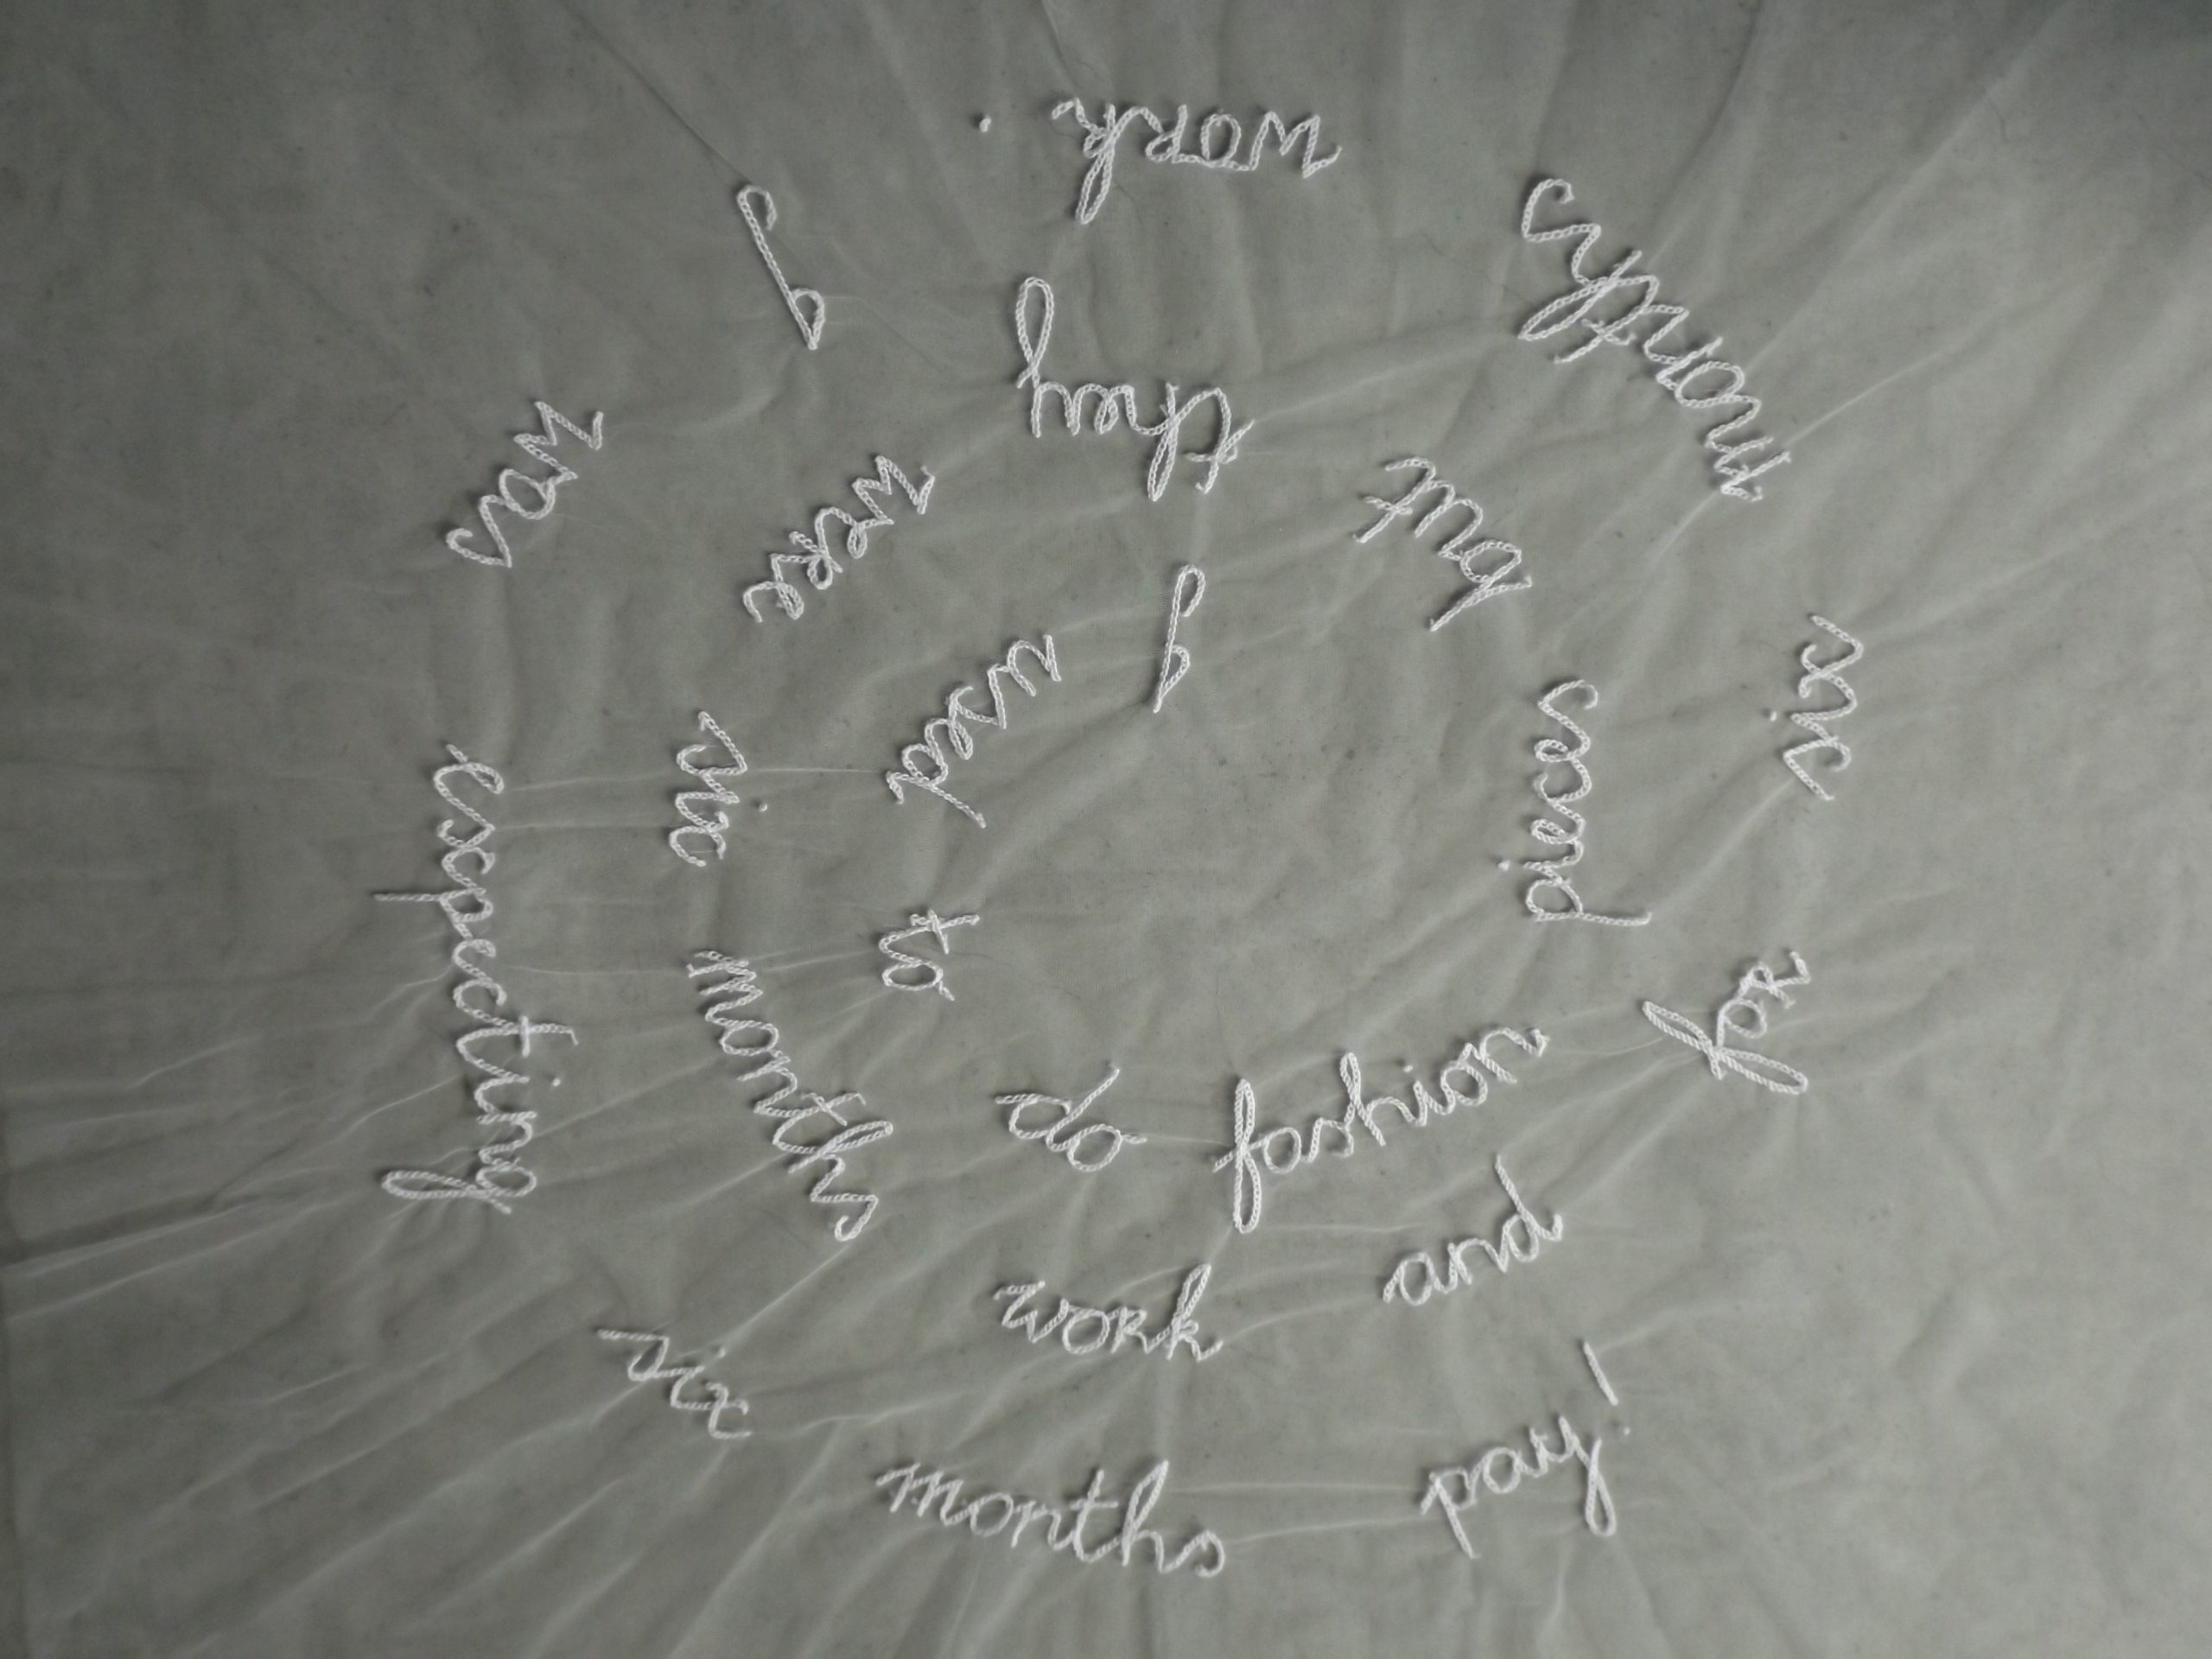 I used to do fashion pieces but they were six months work and for six months work. I was expecting six months pay!